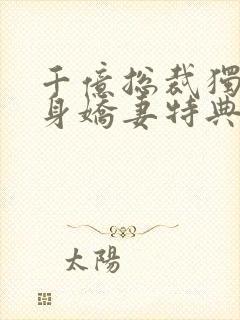 千億总裁獨
身嬌妻特典
太陽